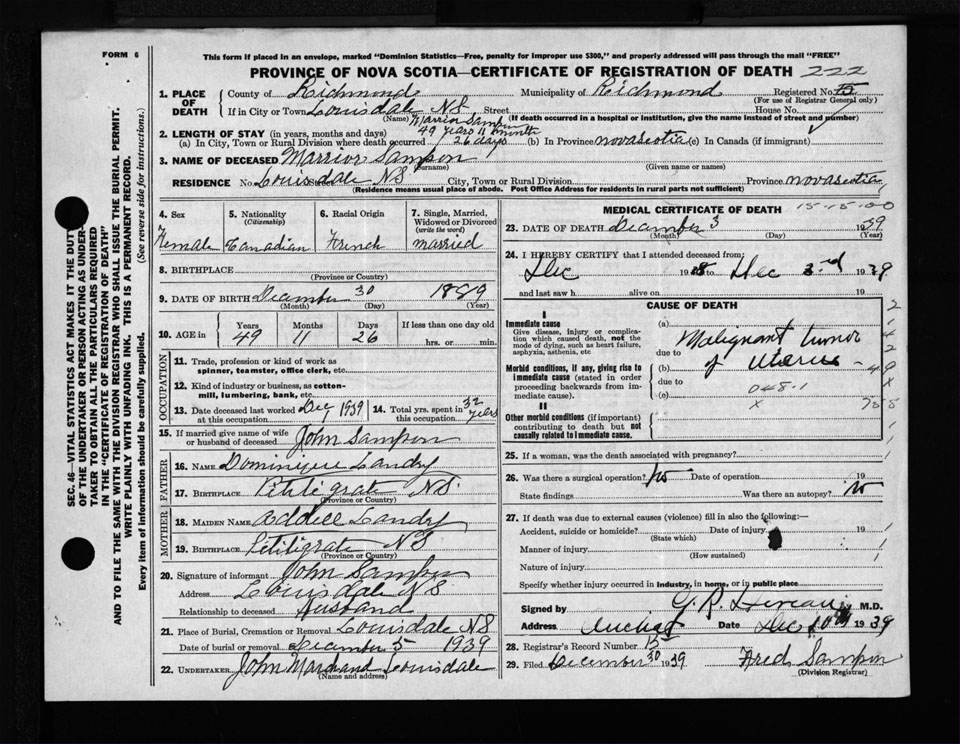 FORM 6
This form if placed in an envelope, marked "Dominion Statistics—Free, penalty for improper use $300," and properly addressed will pass through the mail "FREE"
PROVINCE OF NOVA SCOTIA—CERTIFICATE OF REGISTRATION OF DEATH 222
1. PLACE OF DEATH
County of Richmond Municipality of Richmond Registered No. 15
(For use of Registrar General only)
If in City or Town Louisdale NS Street House No.
(Name) (If death occurred in a hospital or institution, give the name instead of street and number)
2. LENGTH OF STAY (in years, months and days) 49 years 11 months
(a) In City, Town or Rural Division where death occurred 26 days (b) In Province novascotia (c) In Canada (if immigrant)
3. NAME OF DECEASED Marrior Sampson
(Surname) (Given name or names)
RESIDENCE No. Louisdale NS City, Town or Rural Division Province novascotia
(Residence means usual place of abode. Post Office Address for residents in rural parts not sufficient)
SEC. 46—VITAL STATISTICS ACT MAKES IT THE DUTY
OF THE UNDERTAKER OR PERSON ACTING AS UNDER-
TAKER TO OBTAIN ALL THE PARTICULARS REQUIRED
IN THE "CERTIFICATE OF REGISTRATION OF DEATH"
AND TO FILE THE SAME WITH THE DIVISION REGISTRAR WHO SHALL ISSUE THE BURIAL PERMIT.
WRITE PLAINLY WITH UNFADING INK. THIS IS A PERMANENT RECORD.
Every item of information should be carefully supplied. (See reverse side for instructions.)
4. Sex Female
5. Nationality (Citizenship) Canadian
6. Racial Origin French
7. Single, Married, Widowed or Divorced (write the word) married
8. BIRTHPLACE
(Province or Country)
9. DATE OF BIRTH December 30 1889
(Month) (Day) (Year)
10. AGE in Years 49 Months 11 Days 26 If less than one day hrs. or min.
OCCUPATION
11. Trade, profession or kind of work as spinner, teamster, office clerk, etc.
12. Kind of industry or business, as cotton-mill, lumbering, bank, etc.
13. Date deceased last worked at this occupation Dec 1939
14. Total yrs. spent in this occupation 32 years
15. If married give name of wife or husband of deceased John Sampson
FATHER
16. NAME Dominique Landry
17. BIRTHPLACE Petitégrate NS
(Province or Country)
MOTHER
18. MAIDEN NAME Addell Landry
19. BIRTHPLACE Petitigrate NS
(Province or Country)
20. Signature of informant John Sampson
Address Louisdale NS
Relationship to deceased Husband
21. Place of Burial, Cremation or Removal Louisdale NS
Date of burial or removal December 5 1939
22. UNDERTAKER John Marchand Louisdale
(Name and Address)
MEDICAL CERTIFICATE OF DEATH
23. DATE OF DEATH December 3 1939
(Month) (Day) (Year)
24. I HEREBY CERTIFY that I attended deceased from:
Dec 1938 to Dec 3rd 1939
and last saw h alive on 19
CAUSE OF DEATH
I
Immediate cause
Give disease, injury or complication which caused death, not the mode of dying, such as heart failure, asphyxia, asthenia, etc
Morbid conditions, if any, giving rise to immediate cause (stated in order proceeding backwards from immediate cause).
II
Other morbid conditions (if important) contributing to death but not causally related to immediate cause.
(a)
Malignant tumor
due to
(b) of Uterus
due to 048.1
(c) x
25. If a woman, was the death associated with pregnancy?
26. Was there a surgical operation? No Date of operation 19
State findings Was there an autopsy? No
27. If death was due to external causes (violence) fill in also the following:—
Accident, suicide or homicide? Date of injury 19
(State which)
Manner of injury
(How sustained)
Nature of injury
Specify whether injury occurred in industry, in home, or in public place
Signed by M.D.
Address Arichat Date Dec 10th 1939
28. Registrar's Record Number 15
29. Filed December 30 1939 Fred Sampson
(Division Registrar)